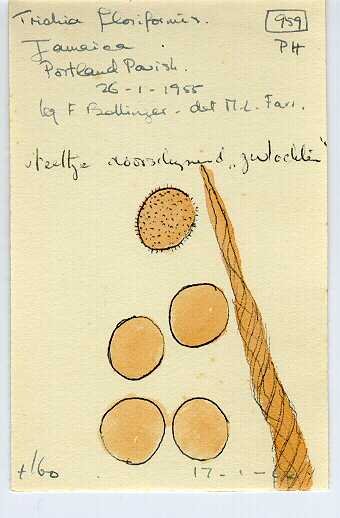 Trichia floriformis. 959
Jamaica PH
Portland Parish.
26-1-1955
leg F Bellinger - det M.L. Farr.
steeltje doorschijnend
+160 17-1-